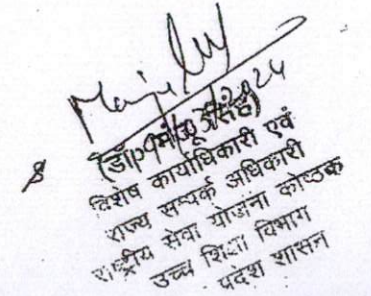 (डॉ० मंजू सिंह)
विशेष कार्याधिकारी एवं
राज्य सम्पर्क अधिकारी
राष्ट्रीय सेवा योजना कोष्ठक
उच्च शिक्षा विभाग
प्रदेश शासन